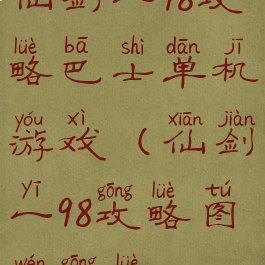 仙剑一98攻
lüè bā shì dān jī
略巴士单机
yóu xì xiān jiàn
游戏(仙剑
yī gōng lüè tú
一98攻略图
wén gōng lüè